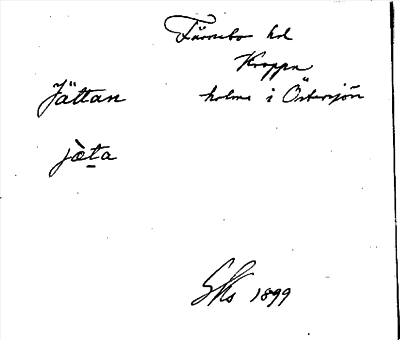 Färnebo hd
Kroppa
Jättan holme i Östersjön
jèta
SKs 1899